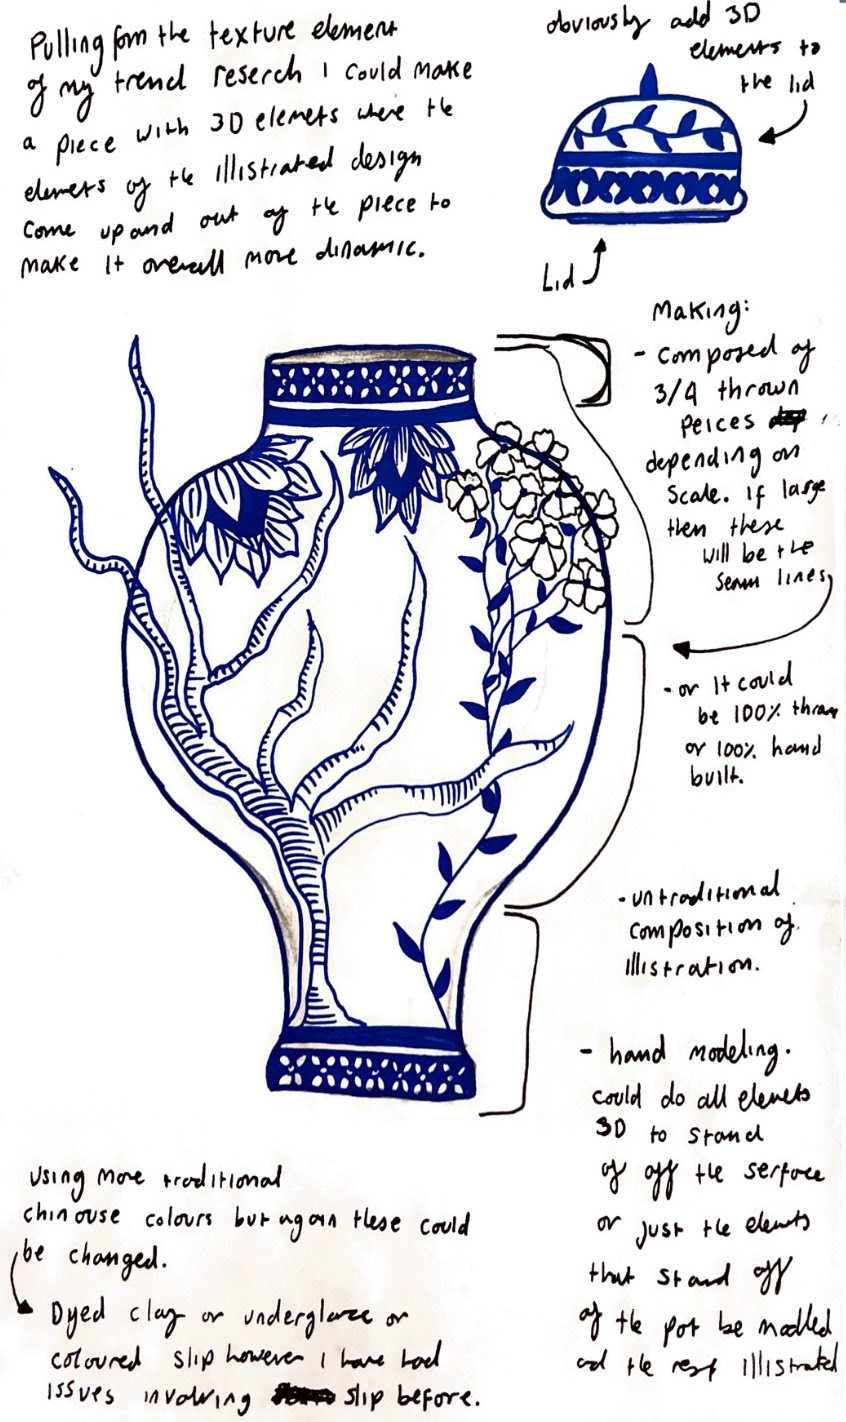 Pulling fom the texture element
of my trend reserch I could make
a piece with 3D elemets where the
elemets of the illustrated design
come up and out of the piece to
make it overall more dinamic.
obviously add 3D
elements to
the lid
Lid
Making:
- composed of
3/4 thrown
peices
depending on
scale. if large
then these
will be the
seam lines
- or it could
be 100% thrown
or 100% hand
built.
- untraditional
composition of
illistration.
- hand modeling.
could do all elemets
3D to stand
of off the serface
or just the elemets
that stand off
of the pot be modlled
and the rest illistrated
Using more traditional
chinouse colours but again these could
be changed.
Dyed clay or underglaze or
coloured slip however I have had
issues involving slip before.